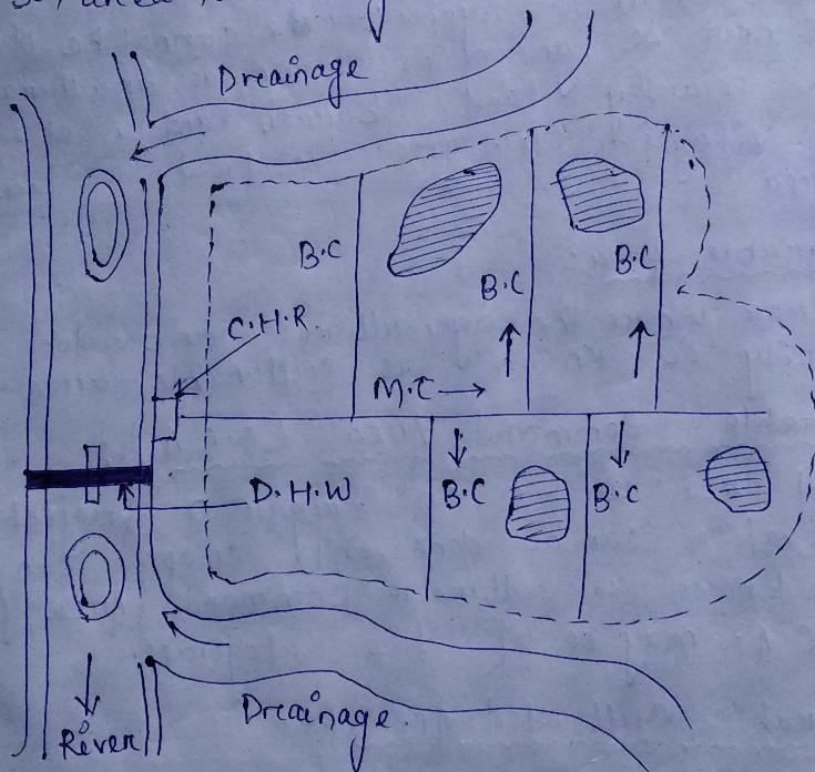 Drainage
B.C
B.C
B.C
C.H.R.
M.C
D.H.W
B.C
B.C
River
Drainage.